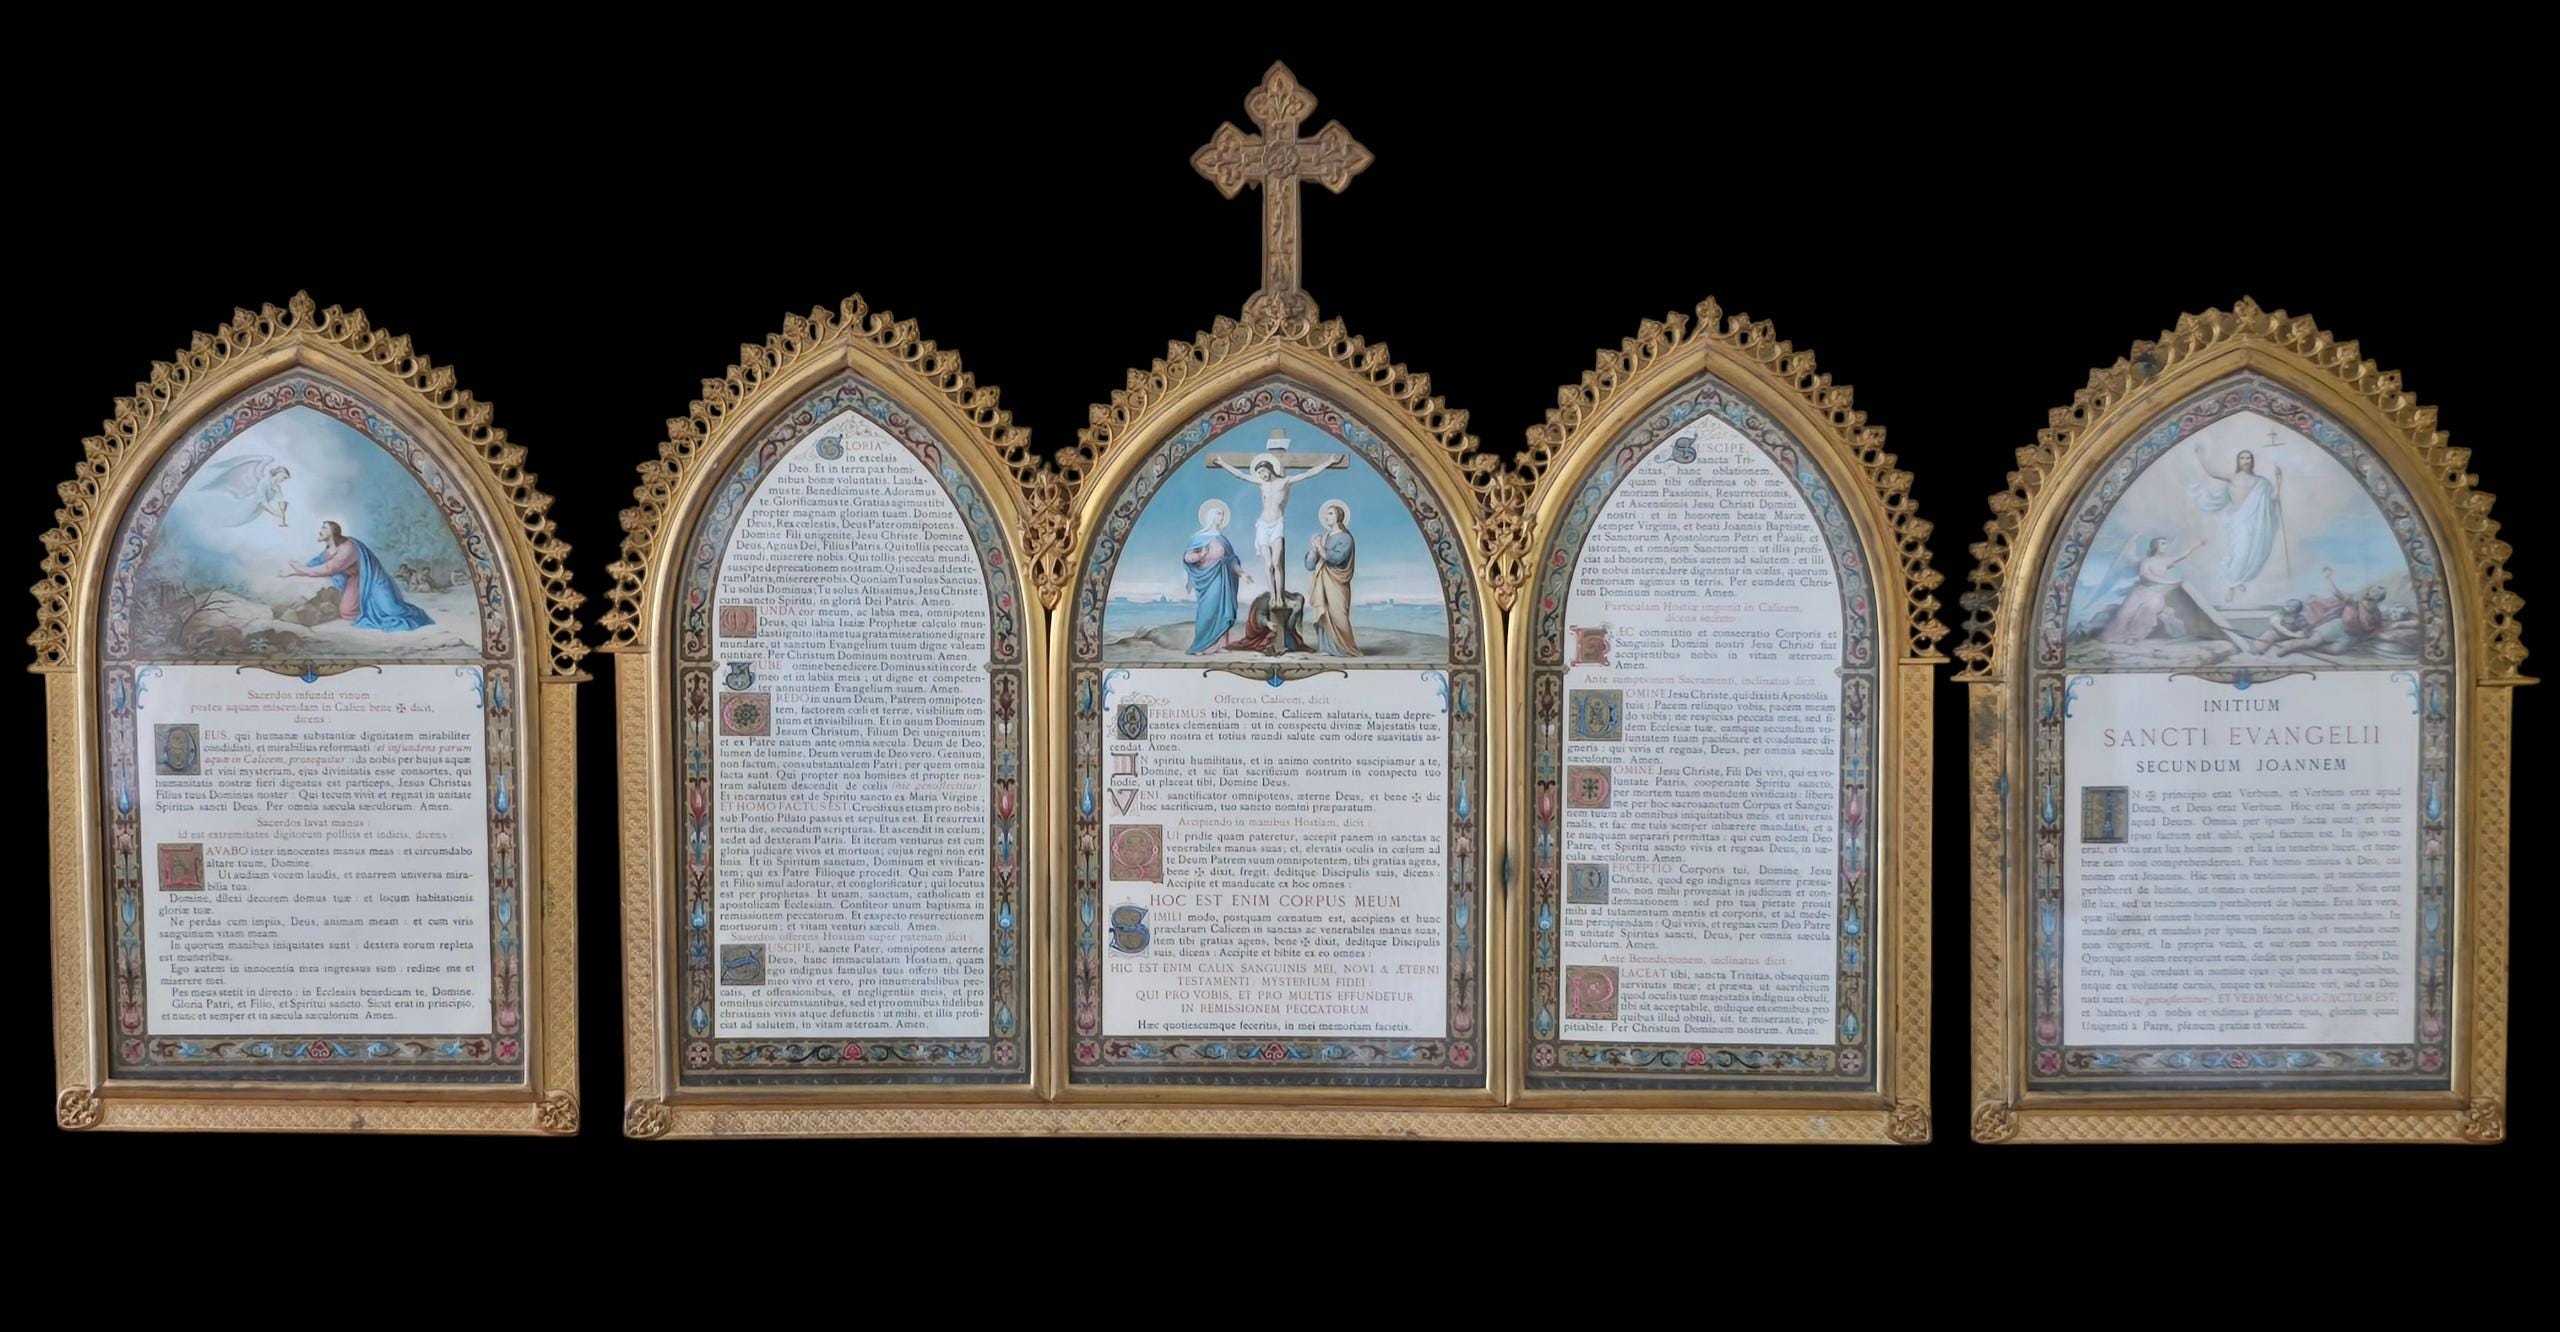 Sacerdos infundit vinum :
postea aquam miscendam in Calice bene ✠ dicit,
dicens :
DEUS, qui humanæ substantiæ dignitatem mirabiliter
condidisti, et mirabilius reformasti (et infundens parum
aquæ in Calicem, prosequitur) : da nobis per hujus aquæ
et vini mysterium, ejus divinitatis esse consortes, qui
humanitatis nostræ fieri dignatus est particeps, Jesus Christus
Filius tuus Dominus noster : Qui tecum vivit et regnat in unitate
Spiritus sancti Deus. Per omnia sæcula sæculorum. Amen.
Sacerdos lavat manus :
id est extremitates digitorum pollicis et indicis, dicens :
LAVABO inter innocentes manus meas : et circumdabo
altare tuum, Domine.
Ut audiam vocem laudis, et enarrem universa mira-
bilia tua.
Domine, dilexi decorem domus tuæ : et locum habitationis
gloriæ tuæ.
Ne perdas cum impiis, Deus, animam meam : et cum viris
sanguinum vitam meam
In quorum manibus iniquitates sunt : dextera eorum repleta
est muneribus.
Ego autem in innocentia mea ingressus sum : redime me et
miserere mei.
Pes meus stetit in directo : in Ecclesiis benedicam te, Domine.
Gloria Patri, et Filio, et Spiritui sancto. Sicut erat in principio,
et nunc et semper et in sæcula sæculorum. Amen.
GLORIA
in excelsis
Deo. Et in terra pax homi-
nibus bonæ voluntatis. Lauda-
mus te. Benedicimus te. Adoramus
te. Glorificamus te. Gratias agimus tibi
propter magnam gloriam tuam. Domine
Deus, Rex cœlestis, Deus Pater omnipotens.
Domine Fili unigenite, Jesu Christe. Domine
Deus, Agnus Dei, Filius Patris. Qui tollis peccata
mundi, miserere nobis. Qui tollis peccata mundi,
suscipe deprecationem nostram. Qui sedes ad dexte-
ram Patris, miserere nobis. Quoniam Tu solus Sanctus;
Tu solus Dominus; Tu solus Altissimus, Jesu Christe;
cum sancto Spiritu, in gloriâ Dei Patris. Amen.
MUNDA cor meum, ac labia mea, omnipotens
Deus, qui labia Isaiæ Prophetæ calculo mun-
dasti ignito : ita me tua grata miseratione dignare
mundare, ut sanctum Evangelium tuum digne valeam
nuntiare. Per Christum Dominum nostrum. Amen.
JUBE omine benedicere. Dominus sit in corde
meo et in labiis meis ; ut digne et competen-
ter annuntiem Evangelium suum. Amen.
CREDO in unum Deum, Patrem omnipoten-
tem, factorem cœli et terræ, visibilium om-
nium et invisibilium. Et in unum Dominum
Jesum Christum, Filium Dei unigenitum;
et ex Patre natum ante omnia sæcula. Deum de Deo,
lumen de lumine, Deum verum de Deo vero. Genitum,
non factum, consubstantialem Patri; per quem omnia
facta sunt. Qui propter nos homines et propter nos-
tram salutem descendit de cœlis (hic genuflectitur).
Et incarnatus est de Spiritu sancto ex Maria Virgine ;
ET HOMO FACTUS EST. Crucifixus etiam pro nobis;
sub Pontio Pilato passus et sepultus est. Et resurrexit
tertia die, secundum scripturas. Et ascendit in cœlum;
sedet ad dexteram Patris. Et iterum venturus est cum
gloria judicare vivos et mortuos; cujus regni non erit
finis. Et in Spiritum sanctum, Dominum et vivifican-
tem; qui ex Patre Filioque procedit. Qui cum Patre
et Filio simul adoratur, et conglorificatur; qui locutus
est per prophetas. Et unam, sanctam, catholicam et
apostolicam Ecclesiam. Confiteor unum baptisma in
remissionem peccatorum. Et exspecto resurrectionem
mortuorum; et vitam venturi sæculi. Amen.
Sacerdos offerens Hostiam super patenam dicit :
SUSCIPE, sancte Pater, omnipotens æterne
Deus, hanc immaculatam Hostiam, quam
ego indignus famulus tuus offero tibi Deo
meo vivo et vero, pro innumerabilibus pec-
catis, et offensionibus, et negligentiis meis, et pro
omnibus circumstantibus, sed et pro omnibus fidelibus
christianis vivis atque defunctis : ut mihi, et illis profi-
ciat ad salutem, in vitam æternam. Amen.
Offerens Calicem, dicit :
OFFERIMUS tibi, Domine, Calicem salutaris, tuam depre-
cantes clementiam : ut in conspectu divinæ Majestatis tuæ,
pro nostra et totius mundi salute cum odore suavitatis as-
cendat. Amen.
IN spiritu humilitatis, et in animo contrito suscipiamur a te,
Domine, et sic fiat sacrificium nostrum in conspectu tuo
hodie, ut placeat tibi, Domine Deus.
VENI, sanctificator omnipotens, æterne Deus, et bene ✠ dic
hoc sacrificium, tuo sancto nomini præparatum.
Accipiendo in manibus Hostiam, dicit :
QUI pridie quam pateretur, accepit panem in sanctas ac
venerabiles manus suas; et, elevatis oculis in cœlum ad
te Deum Patrem suum omnipotentem, tibi gratias agens,
bene ✠ dixit, fregit, deditque Discipulis suis, dicens :
Accipite et manducate ex hoc omnes :
HOC EST ENIM CORPUS MEUM
SIMILI modo, postquam cœnatum est, accipiens et hunc
præclarum Calicem in sanctas ac venerabiles manus suas,
item tibi gratias agens, bene ✠ dixit, deditque Discipulis
suis, dicens : Accipite et bibite ex eo omnes :
HIC EST ENIM CALIX SANGUINIS MEI, NOVI & ÆTERNI
TESTAMENTI : MYSTERIUM FIDEI :
QUI PRO VOBIS, ET PRO MULTIS EFFUNDETUR
IN REMISSIONEM PECCATORUM
Hæc quotiescumque feceritis, in mei memoriam facietis.
SUSCIPE,
sancta Tri-
nitas, hanc oblationem,
quam tibi offerimus ob me-
moriam Passionis, Resurrectionis,
et Ascensionis Jesu Christi Domini
nostri : et in honorem beatæ Mariæ
semper Virginis, et beati Joannis Baptistæ,
et Sanctorum Apostolorum Petri et Pauli, et
istorum, et omnium Sanctorum : ut illis profi-
ciat ad honorem, nobis autem ad salutem : et illi
pro nobis intercedere dignentur in cœlis, quorum
memoriam agimus in terris. Per eumdem Chris-
tum Dominum nostrum. Amen.
Particulam Hostiæ imponit in Calicem,
dicens secreto :
HÆC commistio et consecratio Corporis et
Sanguinis Domini nostri Jesu Christi fiat
accipientibus nobis in vitam æternam.
Amen.
Ante sumptionem Sacramenti, inclinatus dicit :
DOMINE Jesu Christe, qui dixisti Apostolis
tuis : Pacem relinquo vobis, pacem meam
do vobis; ne respicias peccata mea, sed fi-
dem Ecclesiæ tuæ, eamque secundum vo-
luntatem tuam pacificare et coadunare di-
gneris : qui vivis et regnas, Deus, per omnia sæcula
sæculorum. Amen.
DOMINE Jesu Christe, Fili Dei vivi, qui ex vo-
luntate Patris, cooperante Spiritu sancto,
per mortem tuam mundum vivificasti : libera
me per hoc sacrosanctum Corpus et Sangui-
nem tuum ab omnibus iniquitatibus meis, et universis
malis, et fac me tuis semper inhærere mandatis, et a
te nunquam separari permittas : qui cum eodem Deo
Patre, et Spiritu sancto vivis et regnas Deus, in sæ-
cula sæculorum. Amen.
PERCEPTIO Corporis tui, Domine, Jesu
Christe, quod ego indignus sumere præsu-
mo, non mihi proveniat in judicium et con-
demnationem : sed pro tua pietate prosit
mihi ad tutamentum mentis et corporis, et ad mede-
lam percipiendam : Qui vivis, et regnas cum Deo Patre
in unitate Spiritus sancti, Deus, per omnia sæcula
sæculorum. Amen.
Ante Benedictionem, inclinatus dicit :
PLACEAT tibi, sancta Trinitas, obsequium
servitutis meæ; et præsta ut sacrificium
quod oculis tuæ majestatis indignus obtuli,
tibi sit acceptabile, mihique et omnibus pro
quibus illud obtuli, sit, te miserante, pro-
pitiabile. Per Christum Dominum nostrum. Amen.
INITIUM
SANCTI EVANGELII
SECUNDUM JOANNEM
IN ✠ principio erat Verbum, et Verbum erat apud
Deum, et Deus erat Verbum. Hoc erat in principio
apud Deum. Omnia per ipsum facta sunt; et sine
ipso factum est nihil, quod factum est. In ipso vita
erat, et vita erat lux hominum : et lux in tenebris lucet, et tene-
bræ eam non comprehenderunt. Fuit homo missus à Deo, cui
nomen erat Joannes. Hic venit in testimonium, ut testimonium
perhiberet de lumine, ut omnes crederent per illum. Non erat
ille lux, sed ut testimonium perhiberet de lumine. Erat lux vera,
quæ illuminat omnem hominem venientem in hunc mundum. In
mundo erat, et mundus per ipsum factus est, et mundus eum
non cognovit. In propria venit, et sui eum non receperunt.
Quotquot autem receperunt eum, dedit eis potestatem filios Dei
fieri, his qui credunt in nomine ejus : qui non ex sanguinibus,
neque ex voluntate carnis, neque ex voluntate viri, sed ex Deo
nati sunt (hic genuflectitur). ET VERBUM CARO FACTUM EST;
et habitavit in nobis et vidimus gloriam ejus, gloriam quasi
Unigeniti à Patre, plenum gratiæ et veritatis.